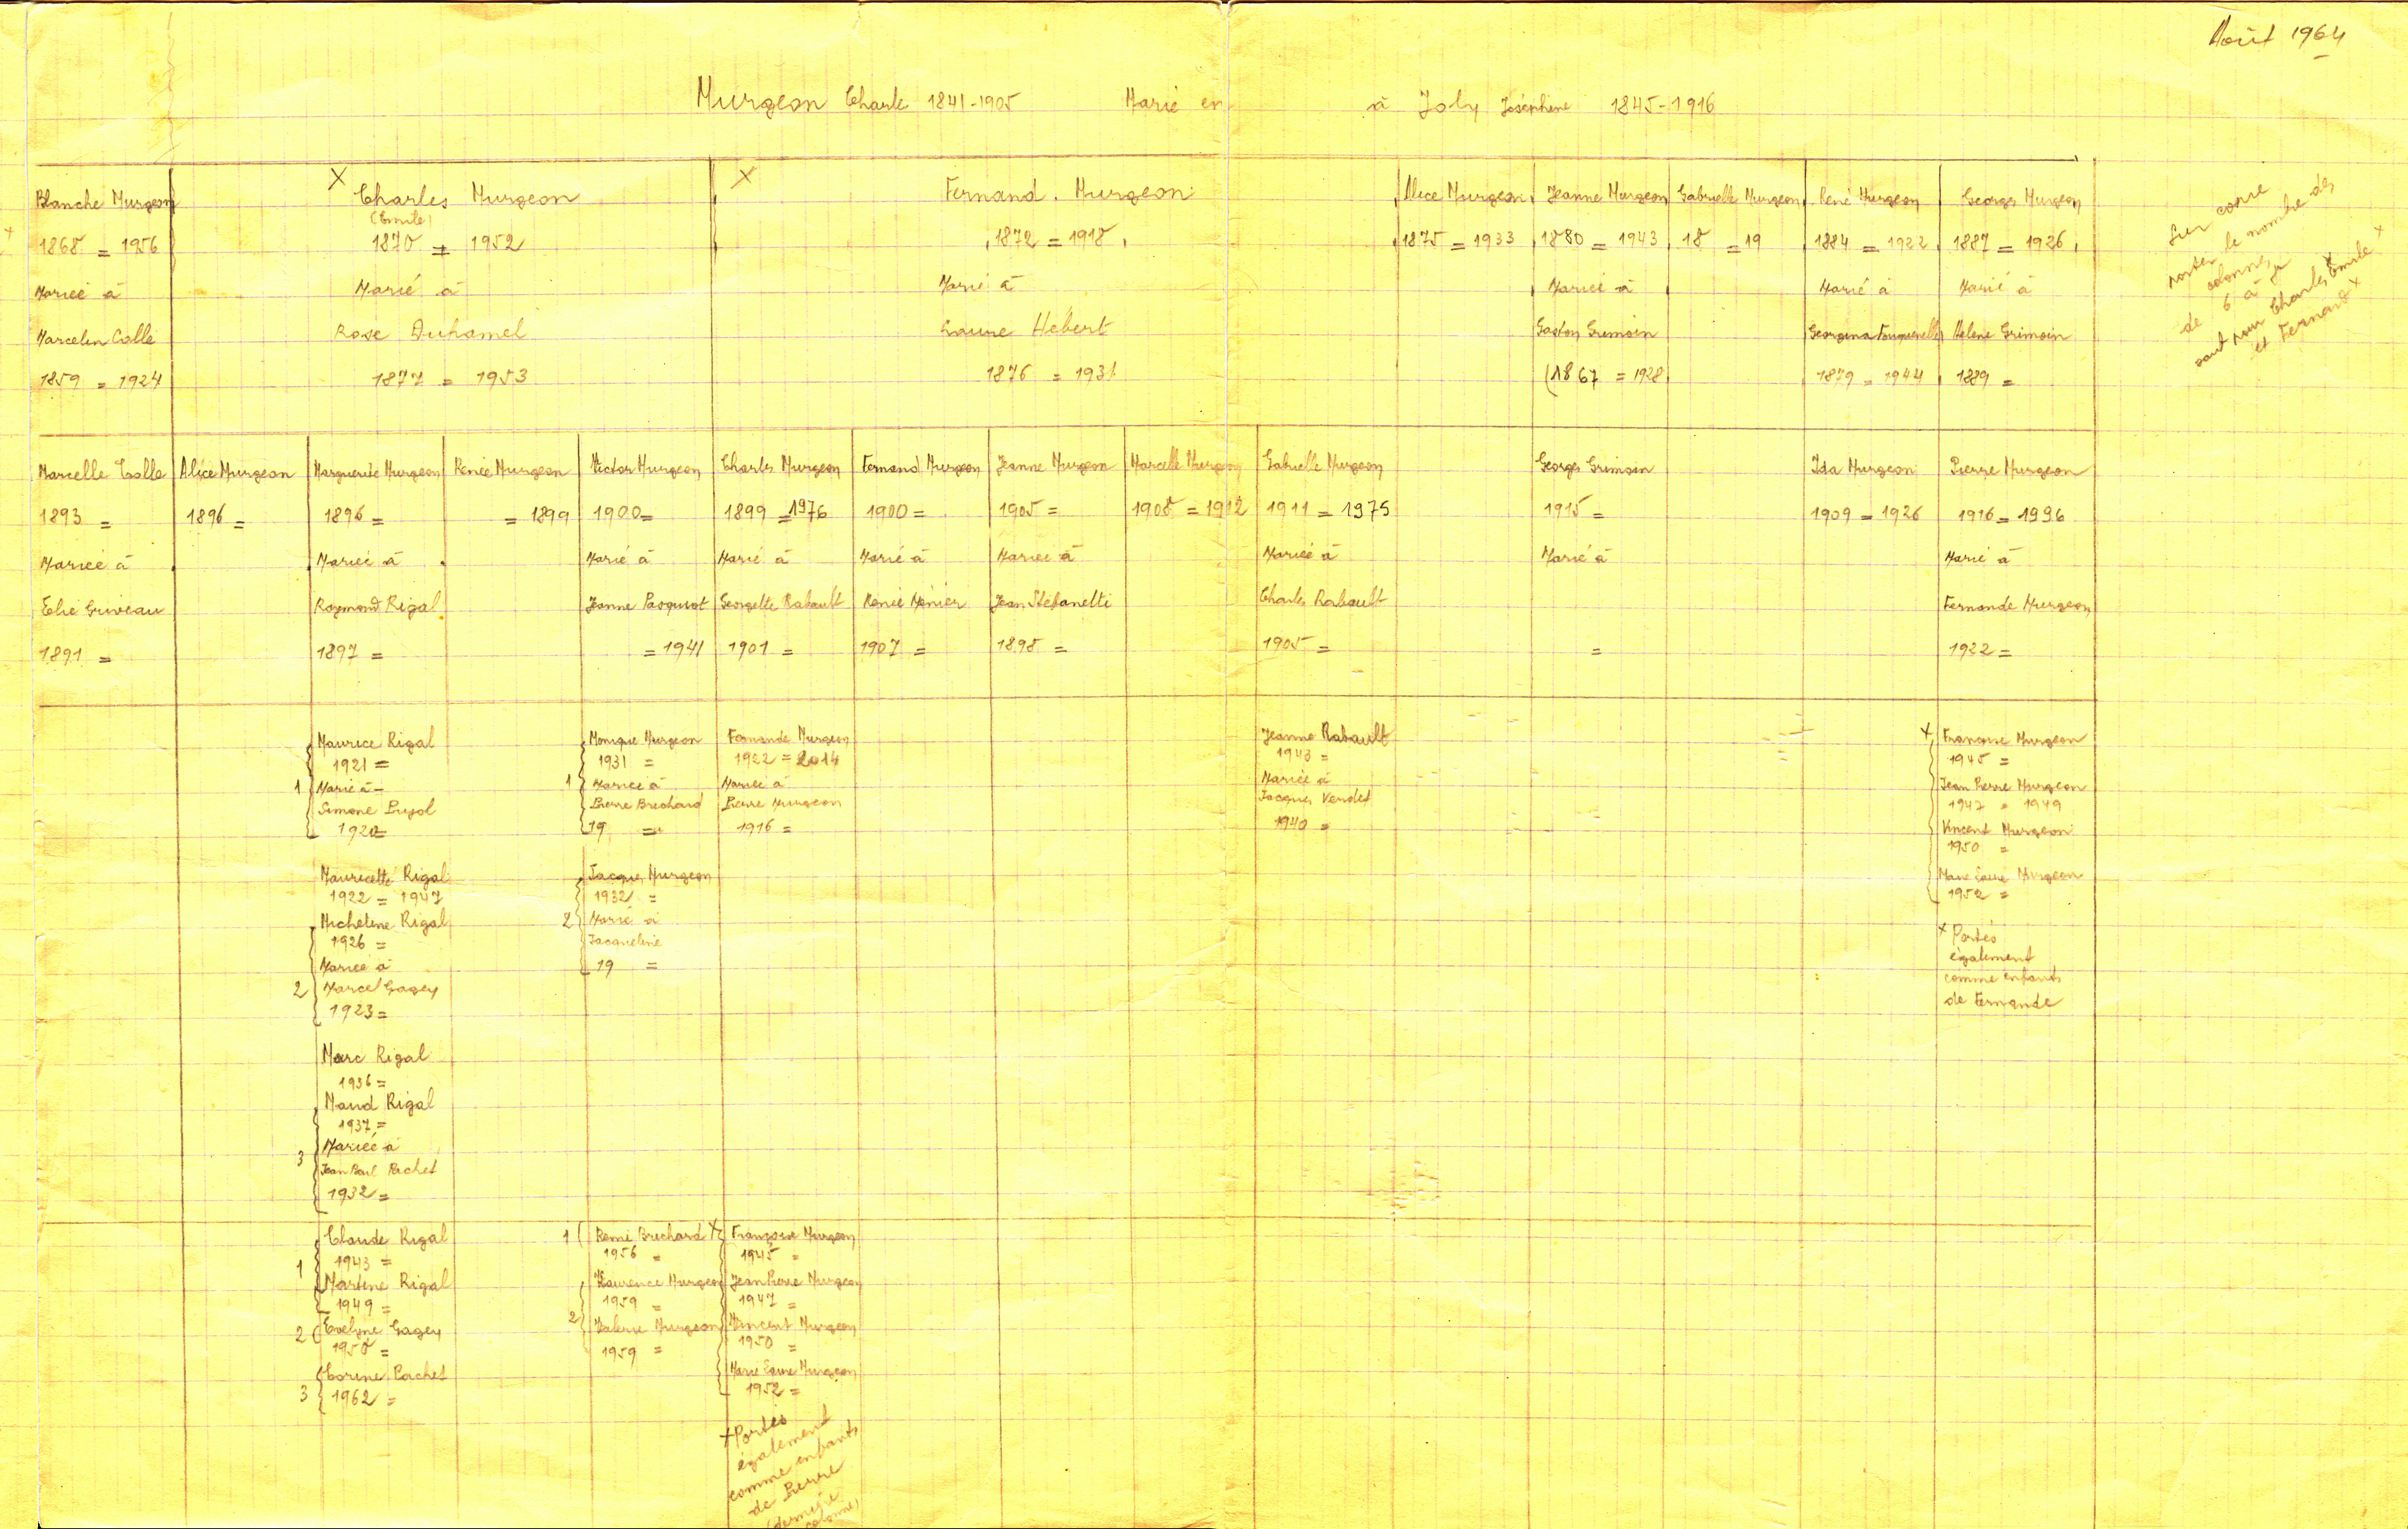 Août 1964
Murgeon Charle 1841-1905 Marié en à Joly Joséphine 1845-1916
Blanche Murgeon
1868 = 1956
Mariée à
Marcelin Colle
1859 = 1924
X Charles Murgeon
(Emile)
1870 = 1952
Marié à
Rose Duhamel
1877 = 1953
X Fernand. Murgeon
1872 = 1918
Marié à
Laure Hébert
1876 = 1931
Alice Murgeon
1875 = 1933
Jeanne Murgeon
1880 = 1943
Mariée à
Gaston Grimoin
(1867 = 1928
Gabrielle Murgeon
18 = 19
René Murgeon
1884 = 1922
Marié à
Georgina Fouquerelle
1879 = 1944
Georges Murgeon
1887 = 1926
Marié à
Helene Grimoin
1889 =
le nombre des
colonnes
de 6 à
sauf pour Charles Emile X
et Fernand X
Marcelle Colle
1893 =
Mariée à
Elie Griveau
1891 =
Alice Murgeon
1896 =
Marguerite Murgeon
1896 =
Mariée à
Raymond Rigal
1897 =
Renée Murgeon
= 1899
Victor Murgeon
1900 =
Marié à
Jeanne Pasquiot
= 1941
Charles Murgeon
1899 = 1976
Marié à
Georgette Rabault
1901 =
Fernand Murgeon
1900 =
Marié à
RenéeMénier
1907 =
Jeanne Murgeon
1905 =
Mariée à
Jean Stéfanelli
1898 =
Marcelle Murgeon
1908 = 1912
Gabrielle Murgeon
1911 = 1975
Mariée à
Charles Rabault
1905 =
Georges Grimoin
1915 =
Marié à
=
Ida Murgeon
1909 = 1926
Pierre Murgeon
1916 = 1996
Marié à
Fernande Murgeon
1922 =
Maurice Rigal
1921 =
1 Marié à
Simone Pujol
1920 =
Mauricette Rigal
1922 = 1947
Micheline Rigal
1926 =
Mariée à
2 Marcel Gagey
1923 =
Marc Rigal
1936 =
Maud Rigal
1937 =
Mariée à
3 Jean Paul Pachet
1932 =
Monique Murgeon
1931 =
1 Mariée à
Pierre Brechard
19 =
Jacques Murgeon
1932 =
2 Marié à
Jacqueline
19 =
Fernande Murgeon
1922 = 2014
Mariée à
Pierre Murgeon
1916 =
Jeanne Rabault
1943 =
Mariée à
Jacques Verdet
1940 =
X Françoise Murgeon
1945 =
Jean Pierre Murgeon
1947 = 1949
Vincent Murgeon
1950 =
Marie Laure Murgeon
1952 =
X Portés
également
comme enfants
de Fernande
Claude Rigal
1943 =
1
Martine Rigal
1949 =
2 Evelyne Gagey
1950 =
Corine Pachet
3 1962 =
1 Remi Brechard
1956 =
Laurence Murgeon
1959 =
2 Valerie Murgeon
1959 =
X Françoise Murgeon
1945 =
Jean Pierre Murgeon
1947 =
Vincent Murgeon
1950 =
Marie Laure Murgeon
1952 =
X Portés
également
comme enfants
de Pierre
(dernière
colonne)